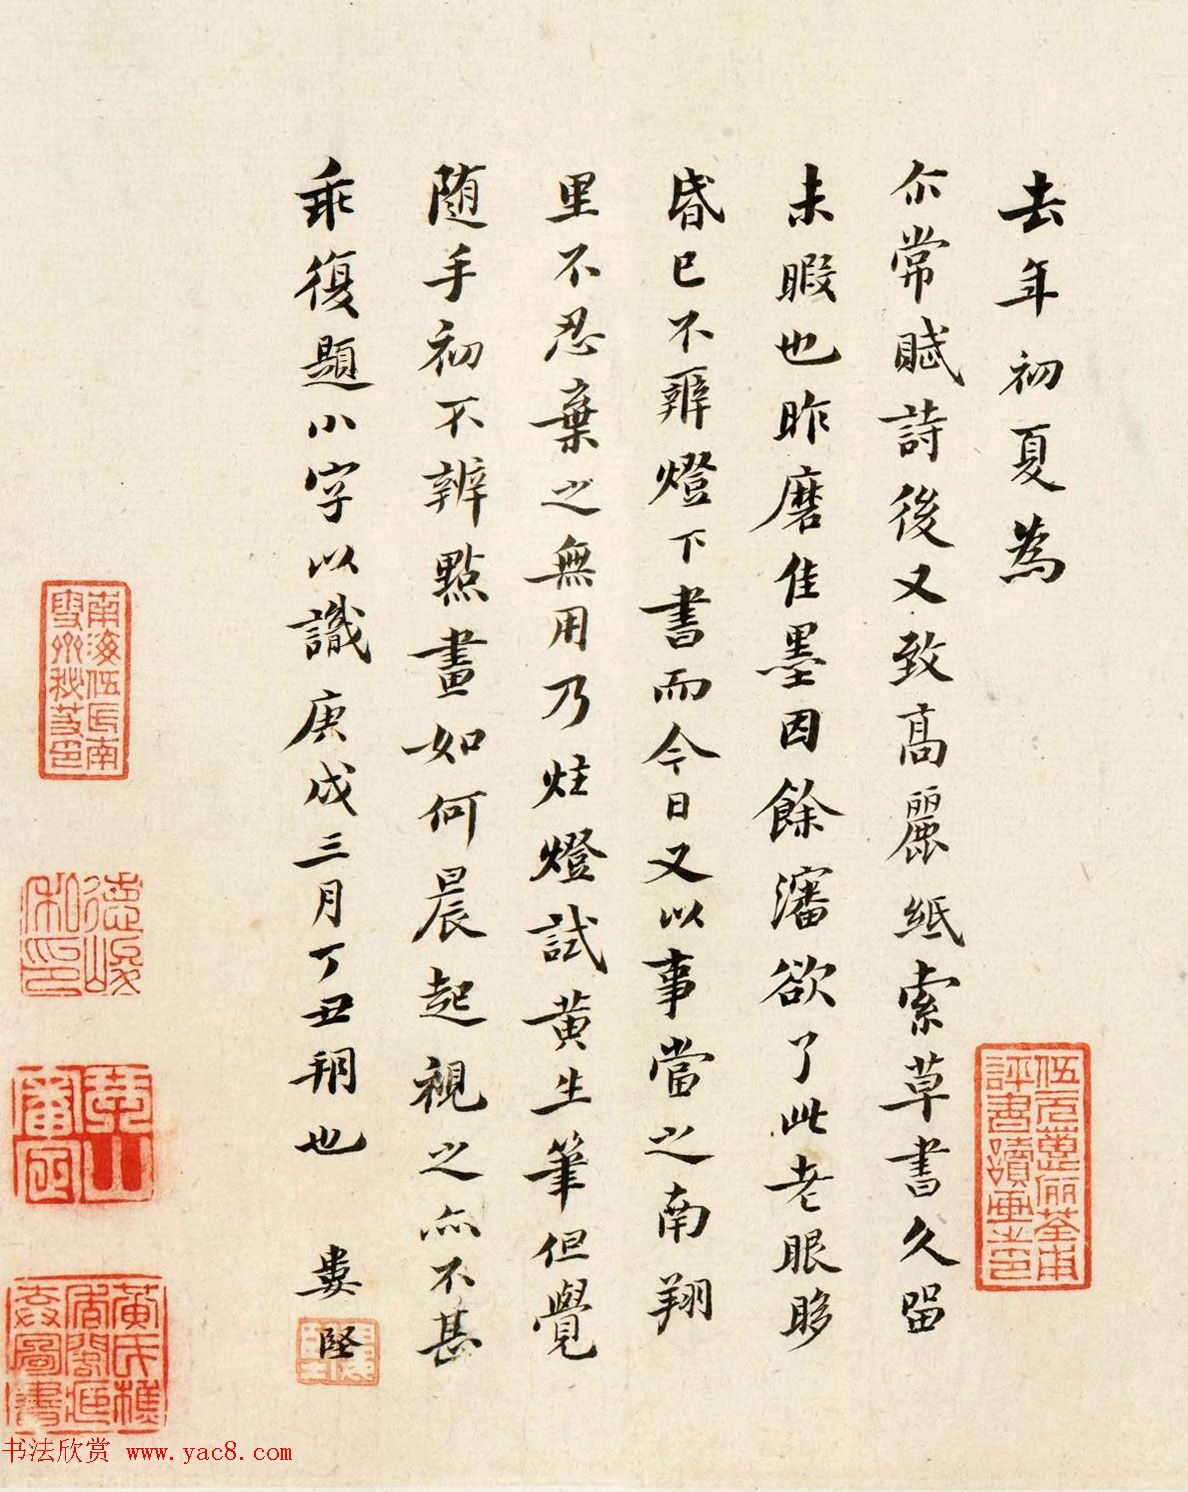 去年初夏為
尒常賦詩後又致高麗紙索草書久留
未暇也昨磨佳墨因餘瀋欲了此老眼眵
昏已不辨燈下書而今日又以事當之南翔
里不忍棄之無用乃炷燈試黄生筆但覺
随手初不辨點畫如何晨起視之亦不甚
乖復題小字以識庚戌三月丁丑朔也 婁堅
伍元蕙儷荃甫
評書讀畫之印
南海伍氏南
雪齋秘芨印
德峻
私印
黄氏樵
書法欣赏 www.yac8.com